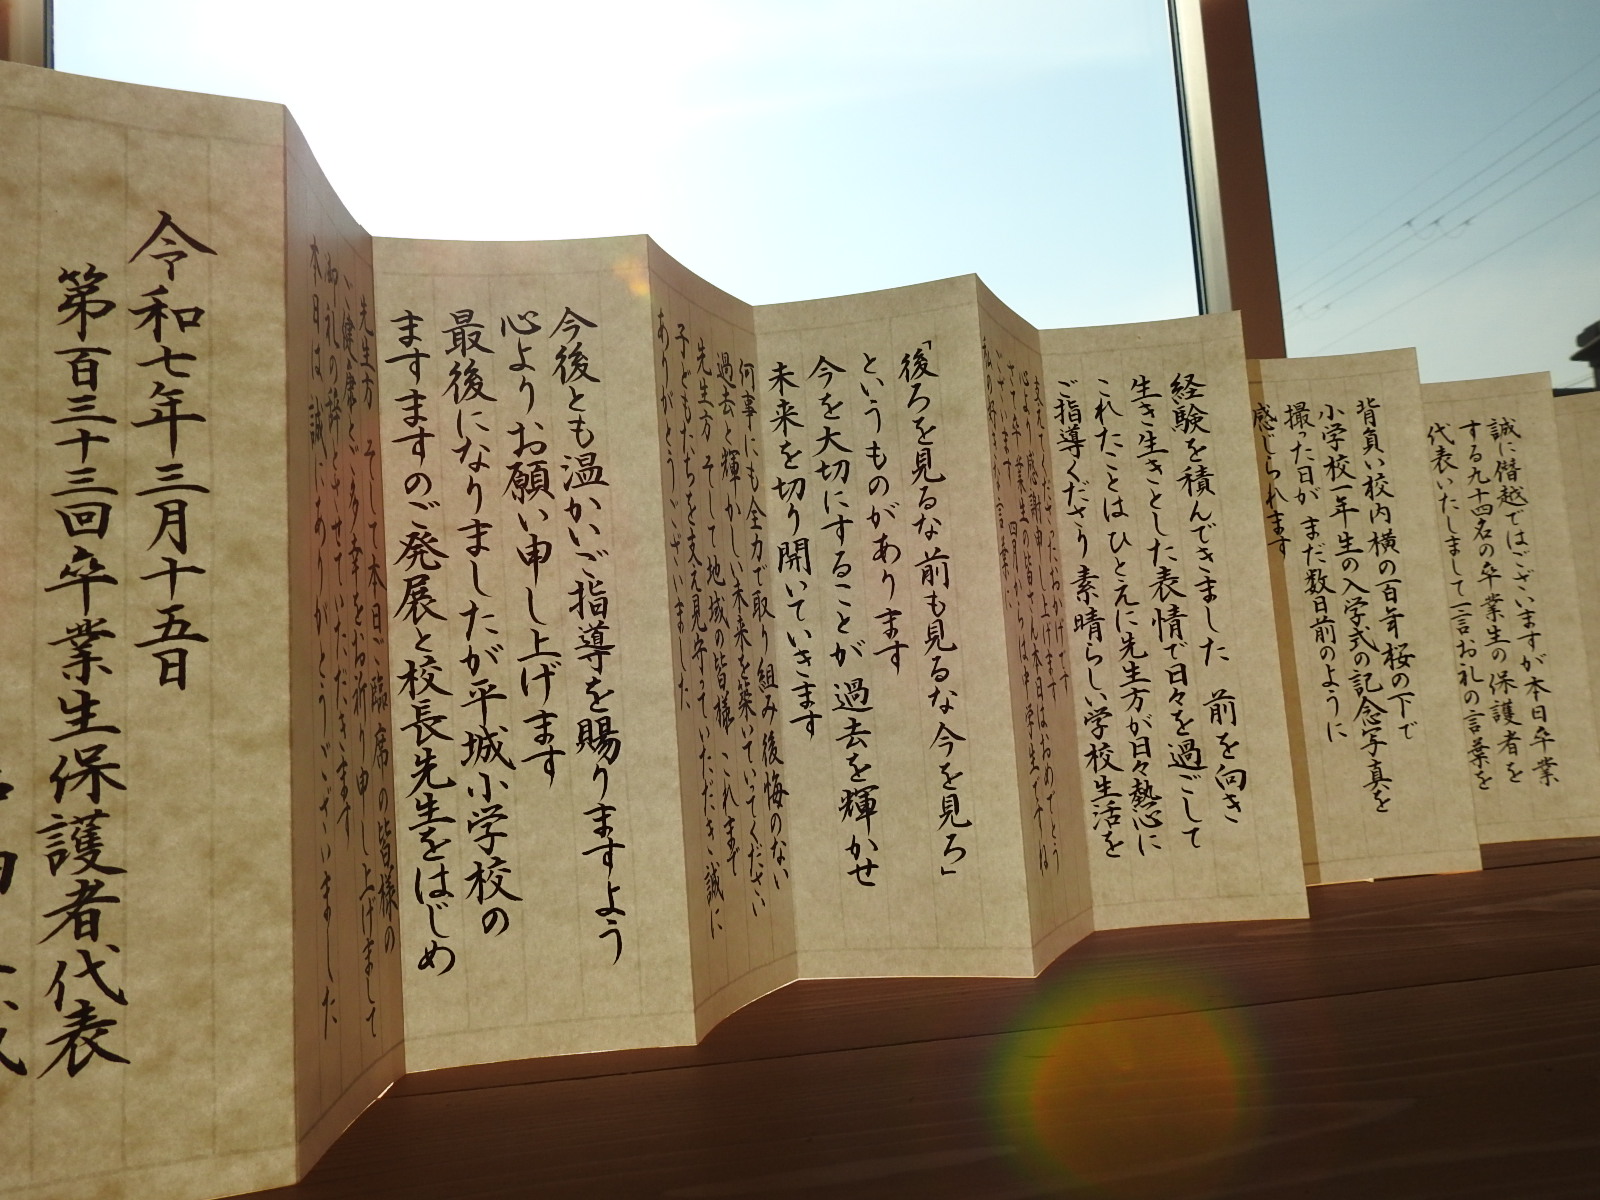 誠に僭越ではございますが本日卒業
する九十四名の卒業生の保護者を
代表いたしまして一言お礼の言葉を
背負い校内横の百年桜の下で
小学校一年生の入学式の記念写真を
撮った日が まだ数日前のように
感じられます
経験を積んできました 前を向き
生き生きとした表情で日々を過ごして
これたことはひとえに先生方が日々熱心に
ご指導くださり素晴らしい学校生活を
支えてくださったおかげです
心より感謝申し上げます
さて卒業生の皆さん本日はおめでとう
ございます 四月からは中学生ですね
私の好きな言葉に
「後ろを見るな前も見るな今を見ろ」
というものがあります
今を大切にすることが過去を輝かせ
未来を切り開いていきます
何事にも全力で取り組み後悔のない
過去と輝かしい未来を築いていってください
先生方 そして地域の皆様 これまで
子どもたちを支え見守っていただき誠に
ありがとうございました
今後とも温かいご指導を賜りますよう
心よりお願い申し上げます
最後になりましたが平城小学校の
ますますのご発展と校長先生をはじめ
先生方 そして本日ご臨席の皆様の
ご健康とご多幸をお祈り申し上げまして
御礼の辞とさせていただきます
本日は誠にありがとうございました
令和七年三月十五日
第百三十三回卒業生保護者代表